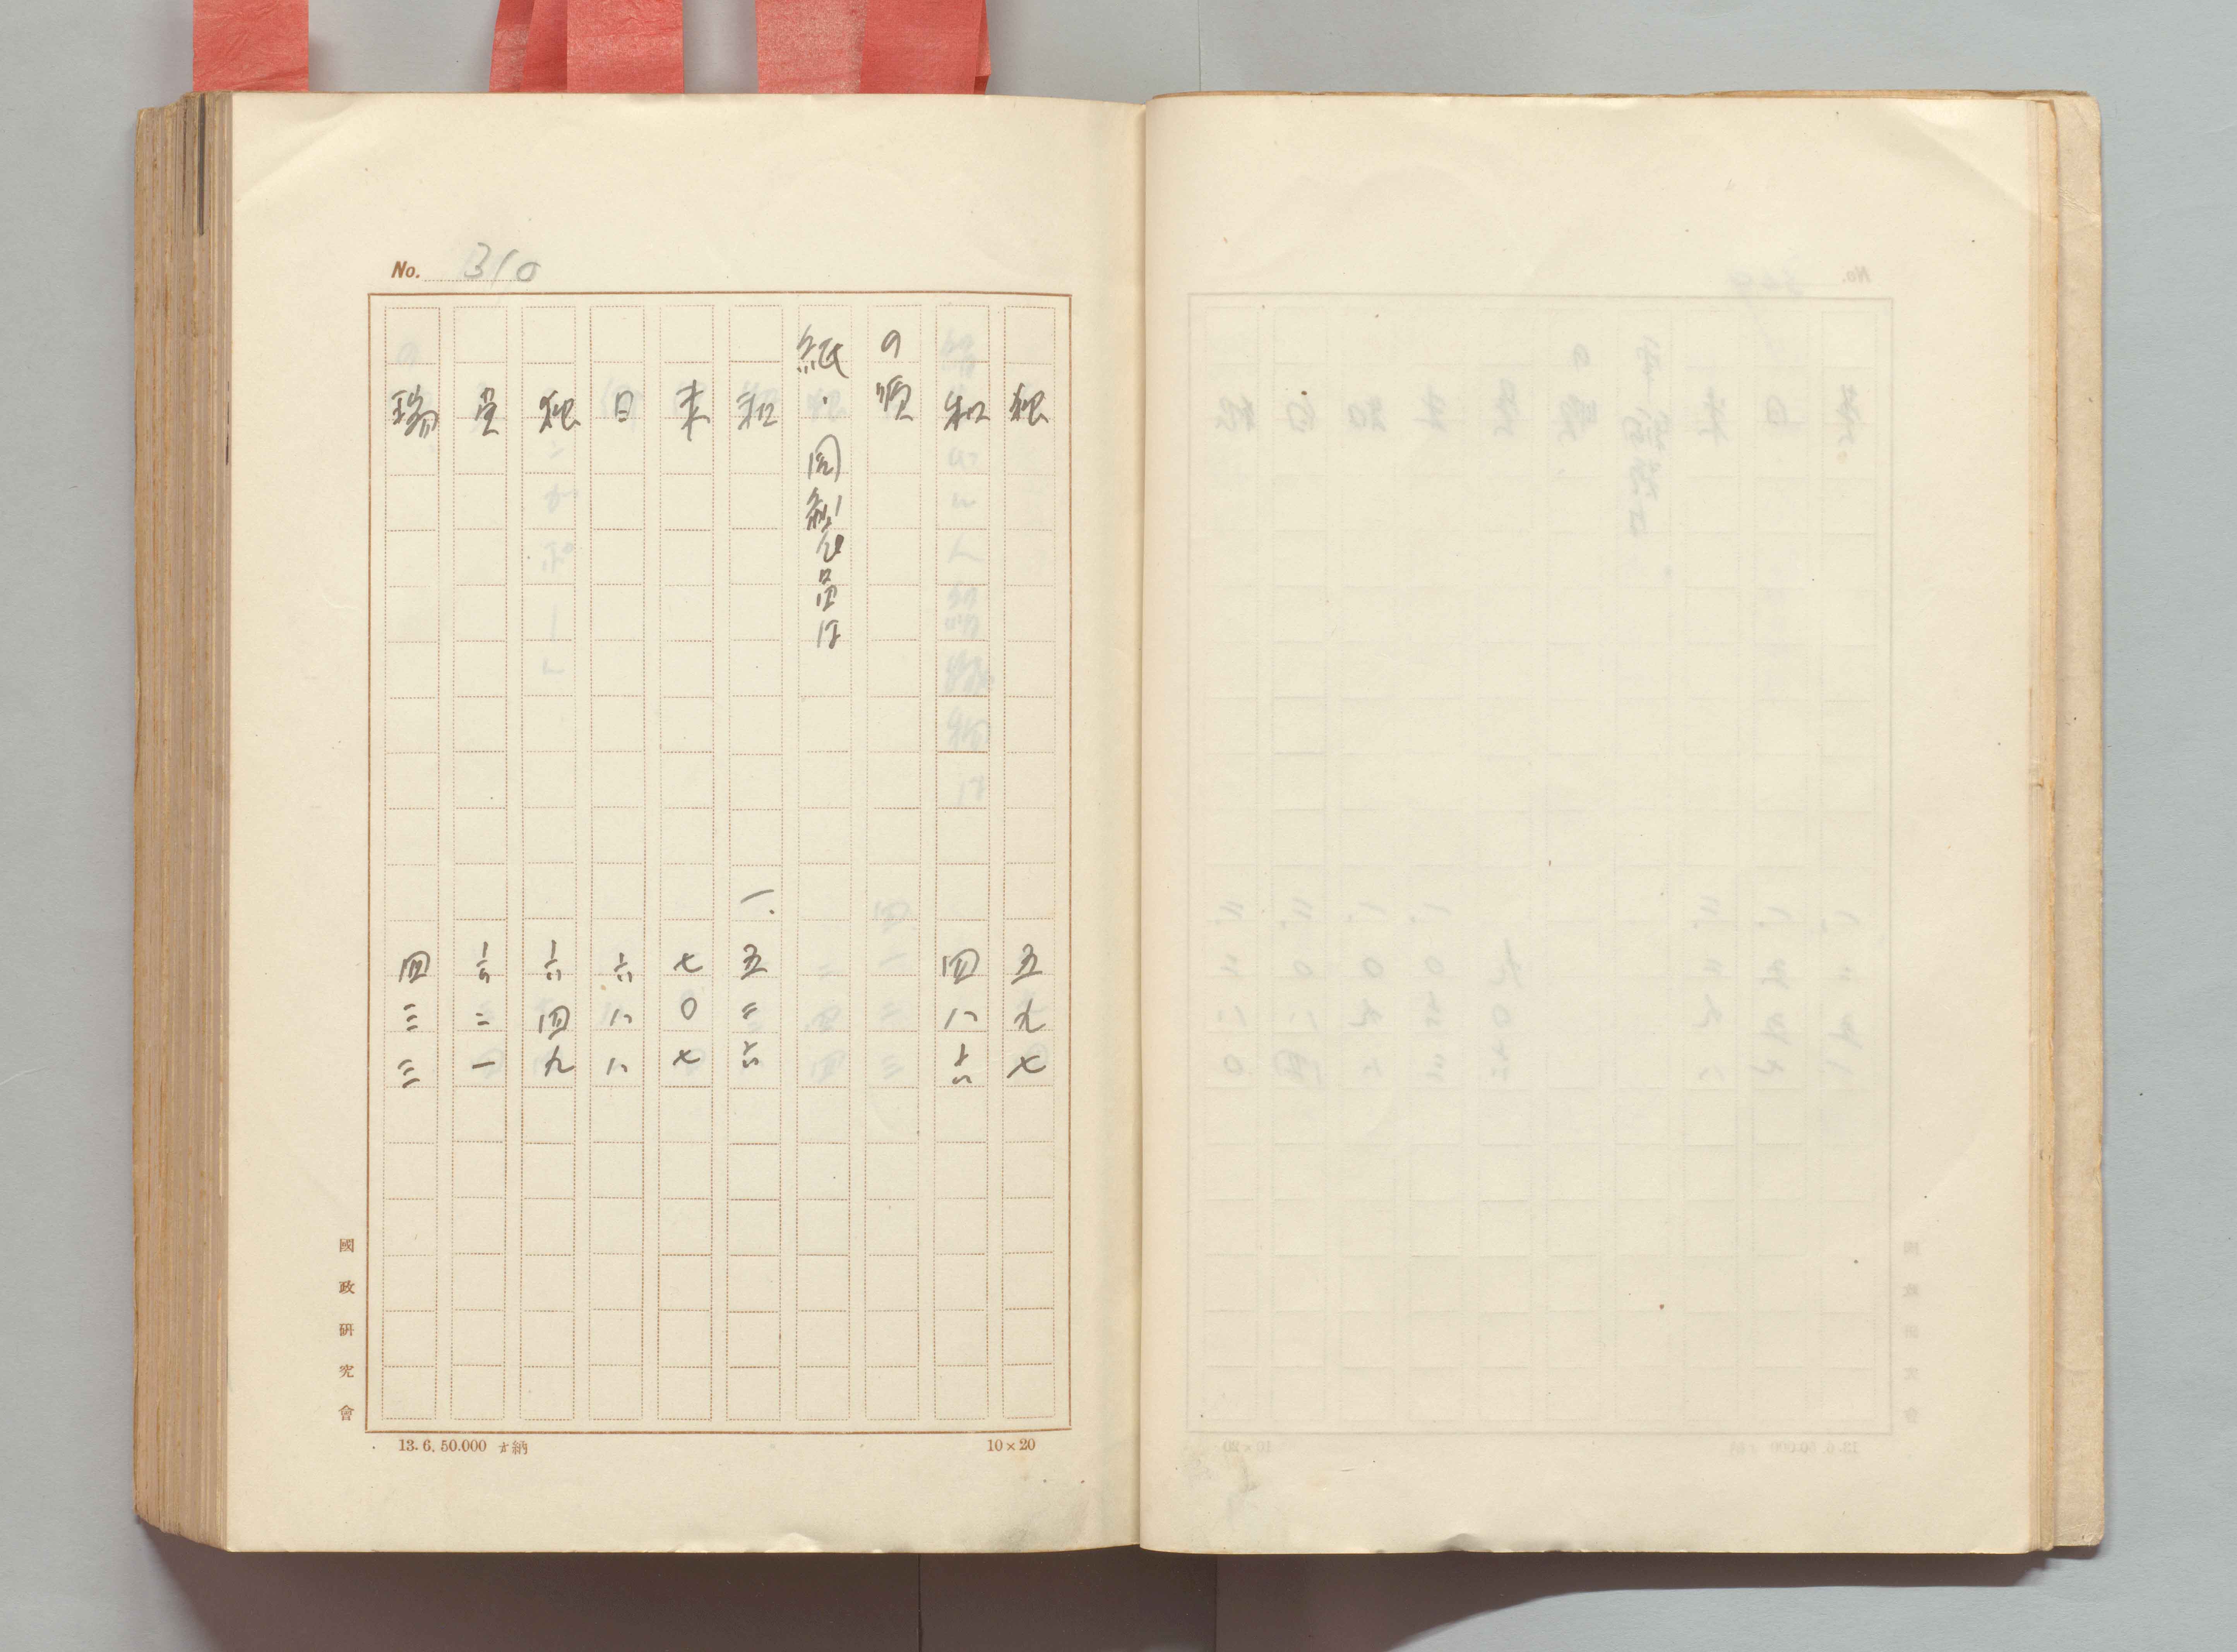 No. 310
独 五九七
和 四八六
の順
紙・同製品は
和 一.五三六
米 七〇七
日 六八八
独 六四九
六二一
瑞 四三三
國政研究會
13.6.50.000 納
10×20